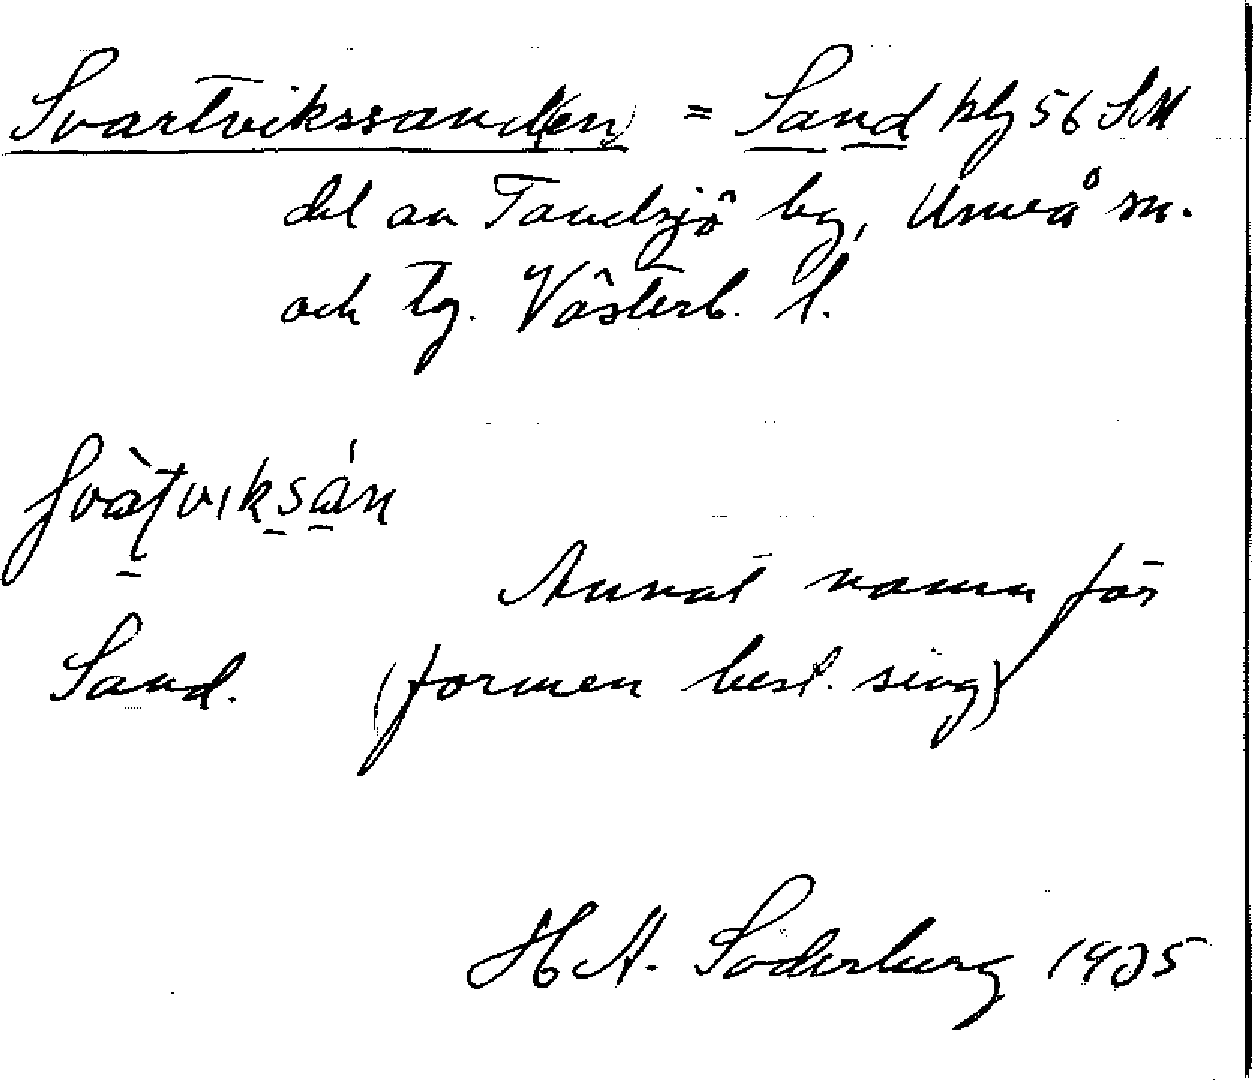 Svartvikssand(en) = Sand hg 56 SM
del av Tavelsjö by, Umeå sn.
och tg. Västerb. l.
svàṭvik̲sán
Annat namn för
Sand. (formen best. sing)
H A. Söderberg 1935